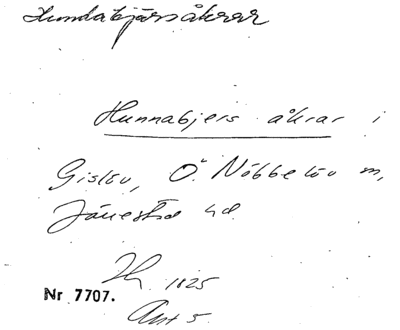 Hundabjärsåkrar
Hunnabjers åkrar i
Gislöv, Ö. Nöbbelöv m,
Järrestad hd.
1825
Nr 7707.
Akt 5.